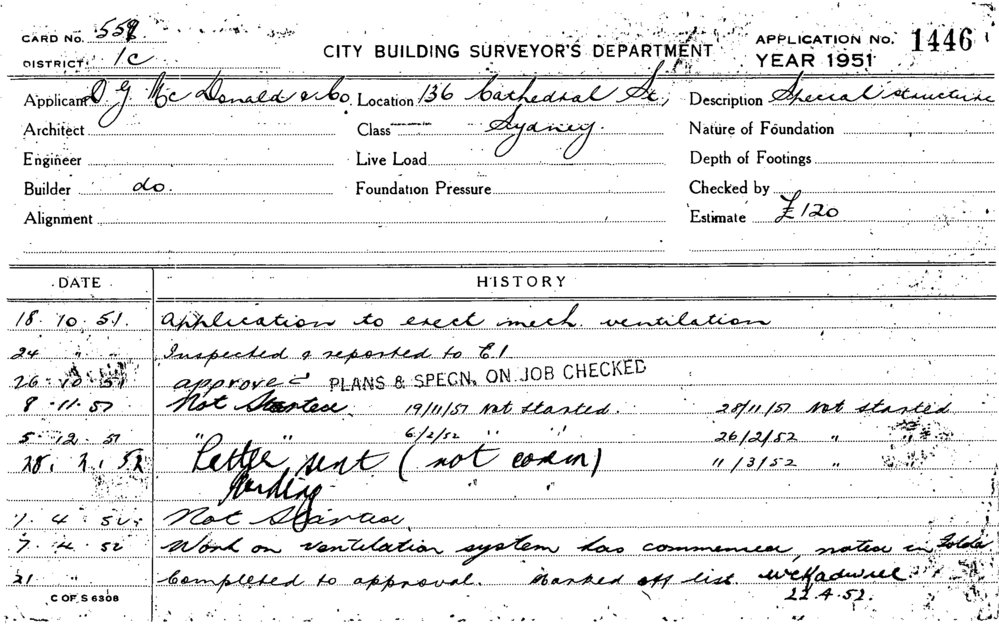 CARD No. 559
DISTRICT 1c
CITY BUILDING SURVEYOR'S DEPARTMENT
APPLICATION No. 1446
YEAR 1951
Applicant D G McDonald & Co Location 136 Cathedral St, Description Special structure
Architect Class Sydney. Nature of Foundation
Engineer Live Load Depth of Footings
Builder do. Foundation Pressure Checked by
Alignment Estimate £120
DATE HISTORY
18. 10. 51. Application to erect mech. ventilation
24 " " Inspected & reported to E.I.
26. 10. 51 approved PLANS & SPECN. ON JOB CHECKED
8. 11. 51 Not Started 19/11/51 Not started. 28/11/51 Not started
5. 12. 51 " " 6/2/52 " " 26/2/52 " "
28. 2. 52 Letter sent (not comm) 11/3/52 "
" "
1. 4. 52. Not Started
7. 4. 52 Work on ventilation system has commenced, noted in folder
21 " Completed to approval. Marked off list.
22.4.52.
C OF S 6308